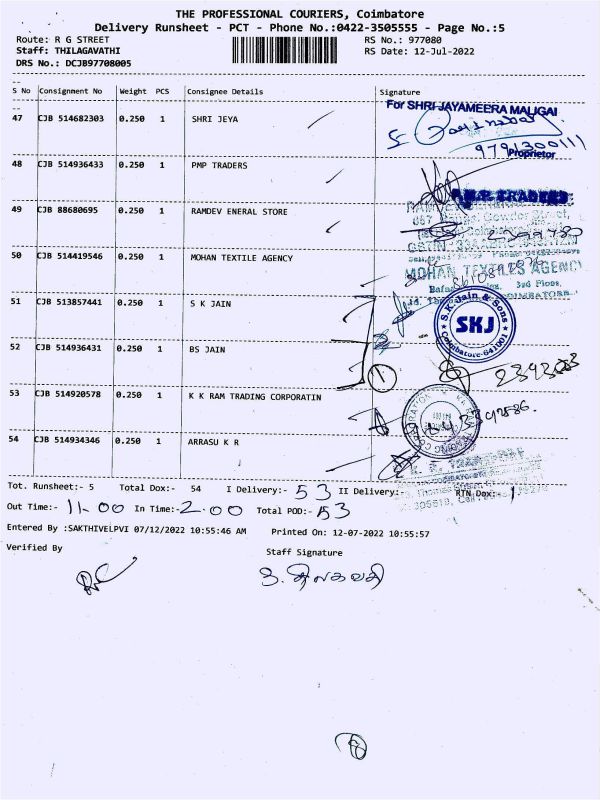 THE PROFESSIONAL COURIERS, Coimbatore
Delivery Runsheet - PCT - Phone No.:0422-3505555 - Page No.:5
Route: R G STREET RS No.: 977080
Staff: THILAGAVATHI RS Date: 12-Jul-2022
DRS No.: DCJB97708005
S No Consignment No Weight PCS Consignee Details Signature
For SHRI JAYAMEERA MALIGAI
47 CJB 514682303 0.250 1 SHRI JEYA
9791300111
Proprietor
48 CJB 514936433 0.250 1 PMP TRADERS
49 CJB 88680695 0.250 1 RAMDEV ENERAL STORE
50 CJB 514419546 0.250 1 MOHAN TEXTILE AGENCY
MOHAN TEXTILES AGENCY
3rd Floor,
51 CJB 513857441 0.250 1 S K JAIN
S.K. Jain & Sons
SKJ
Coimbatore-641001
52 CJB 514936431 0.250 1 BS JAIN
1
53 CJB 514920578 0.250 1 K K RAM TRADING CORPORATIN
54 CJB 514934346 0.250 1 ARRASU K R
Tot. Runsheet:- 5 Total Dox:- 54 I Delivery:- 53 II Delivery:- RTN Dox: 1
Out Time:- 11.00 In Time:- 2.00 Total POD:- 53
Entered By :SAKTHIVELPVI 07/12/2022 10:55:46 AM Printed On: 12-07-2022 10:55:57
Verified By Staff Signature
த. திலகவதி